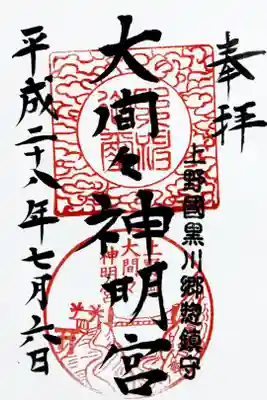 奉拝
上野國黒川郷総鎮守
大間々神明宮
平成二十八年七月六日
上野國
大間々
神明宮